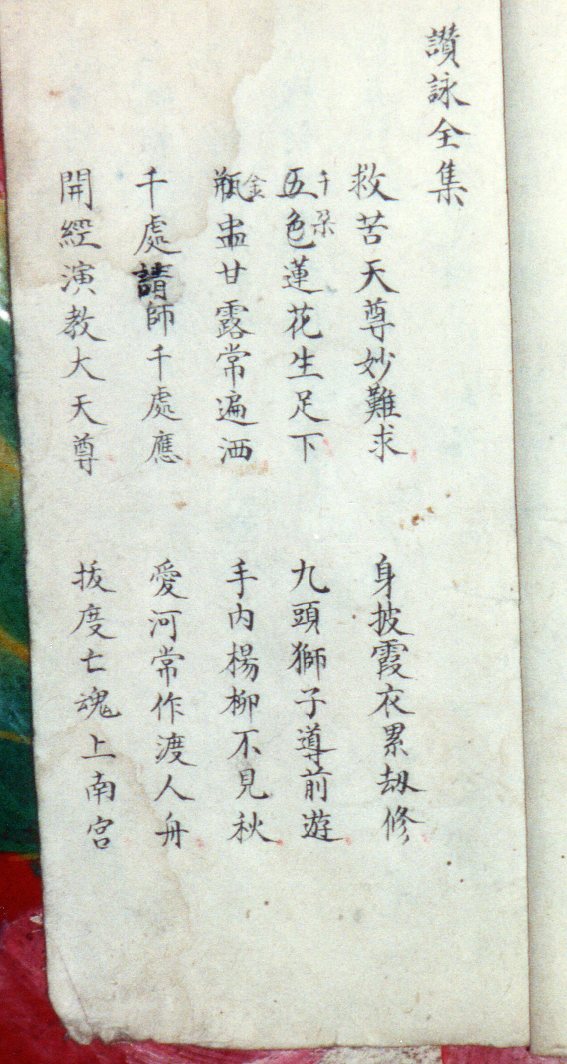 讚詠全集
救苦天尊妙難求 身披霞衣累劫修
五色蓮花生足下 九頭獅子導前遊
千朵
瓶盅甘露常遍洒 手內楊柳不見秋
金
千處請師千處應 愛河常作渡人舟
開經演教大天尊 拔度亡魂上南宮